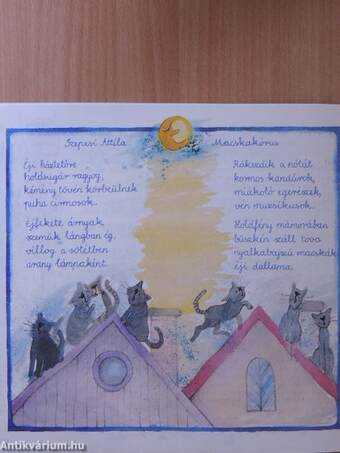 Szepesi Attila
Macskakórus
Éji háztetőre
holdsugár ragyog,
kémény tövén körbeülnek
puha cirmosok.
Éjfekete árnyak,
szemük lángban ég,
villog a sötétben
arany lámpaként.
Rákezdik a nótát
kormos kandúrok,
miákoló egerészek,
vén muzsikusok.
Holdfény mámorában
büszkén száll tova
nyalkabajszú macskák
éji dallama.
Antikvárium.hu